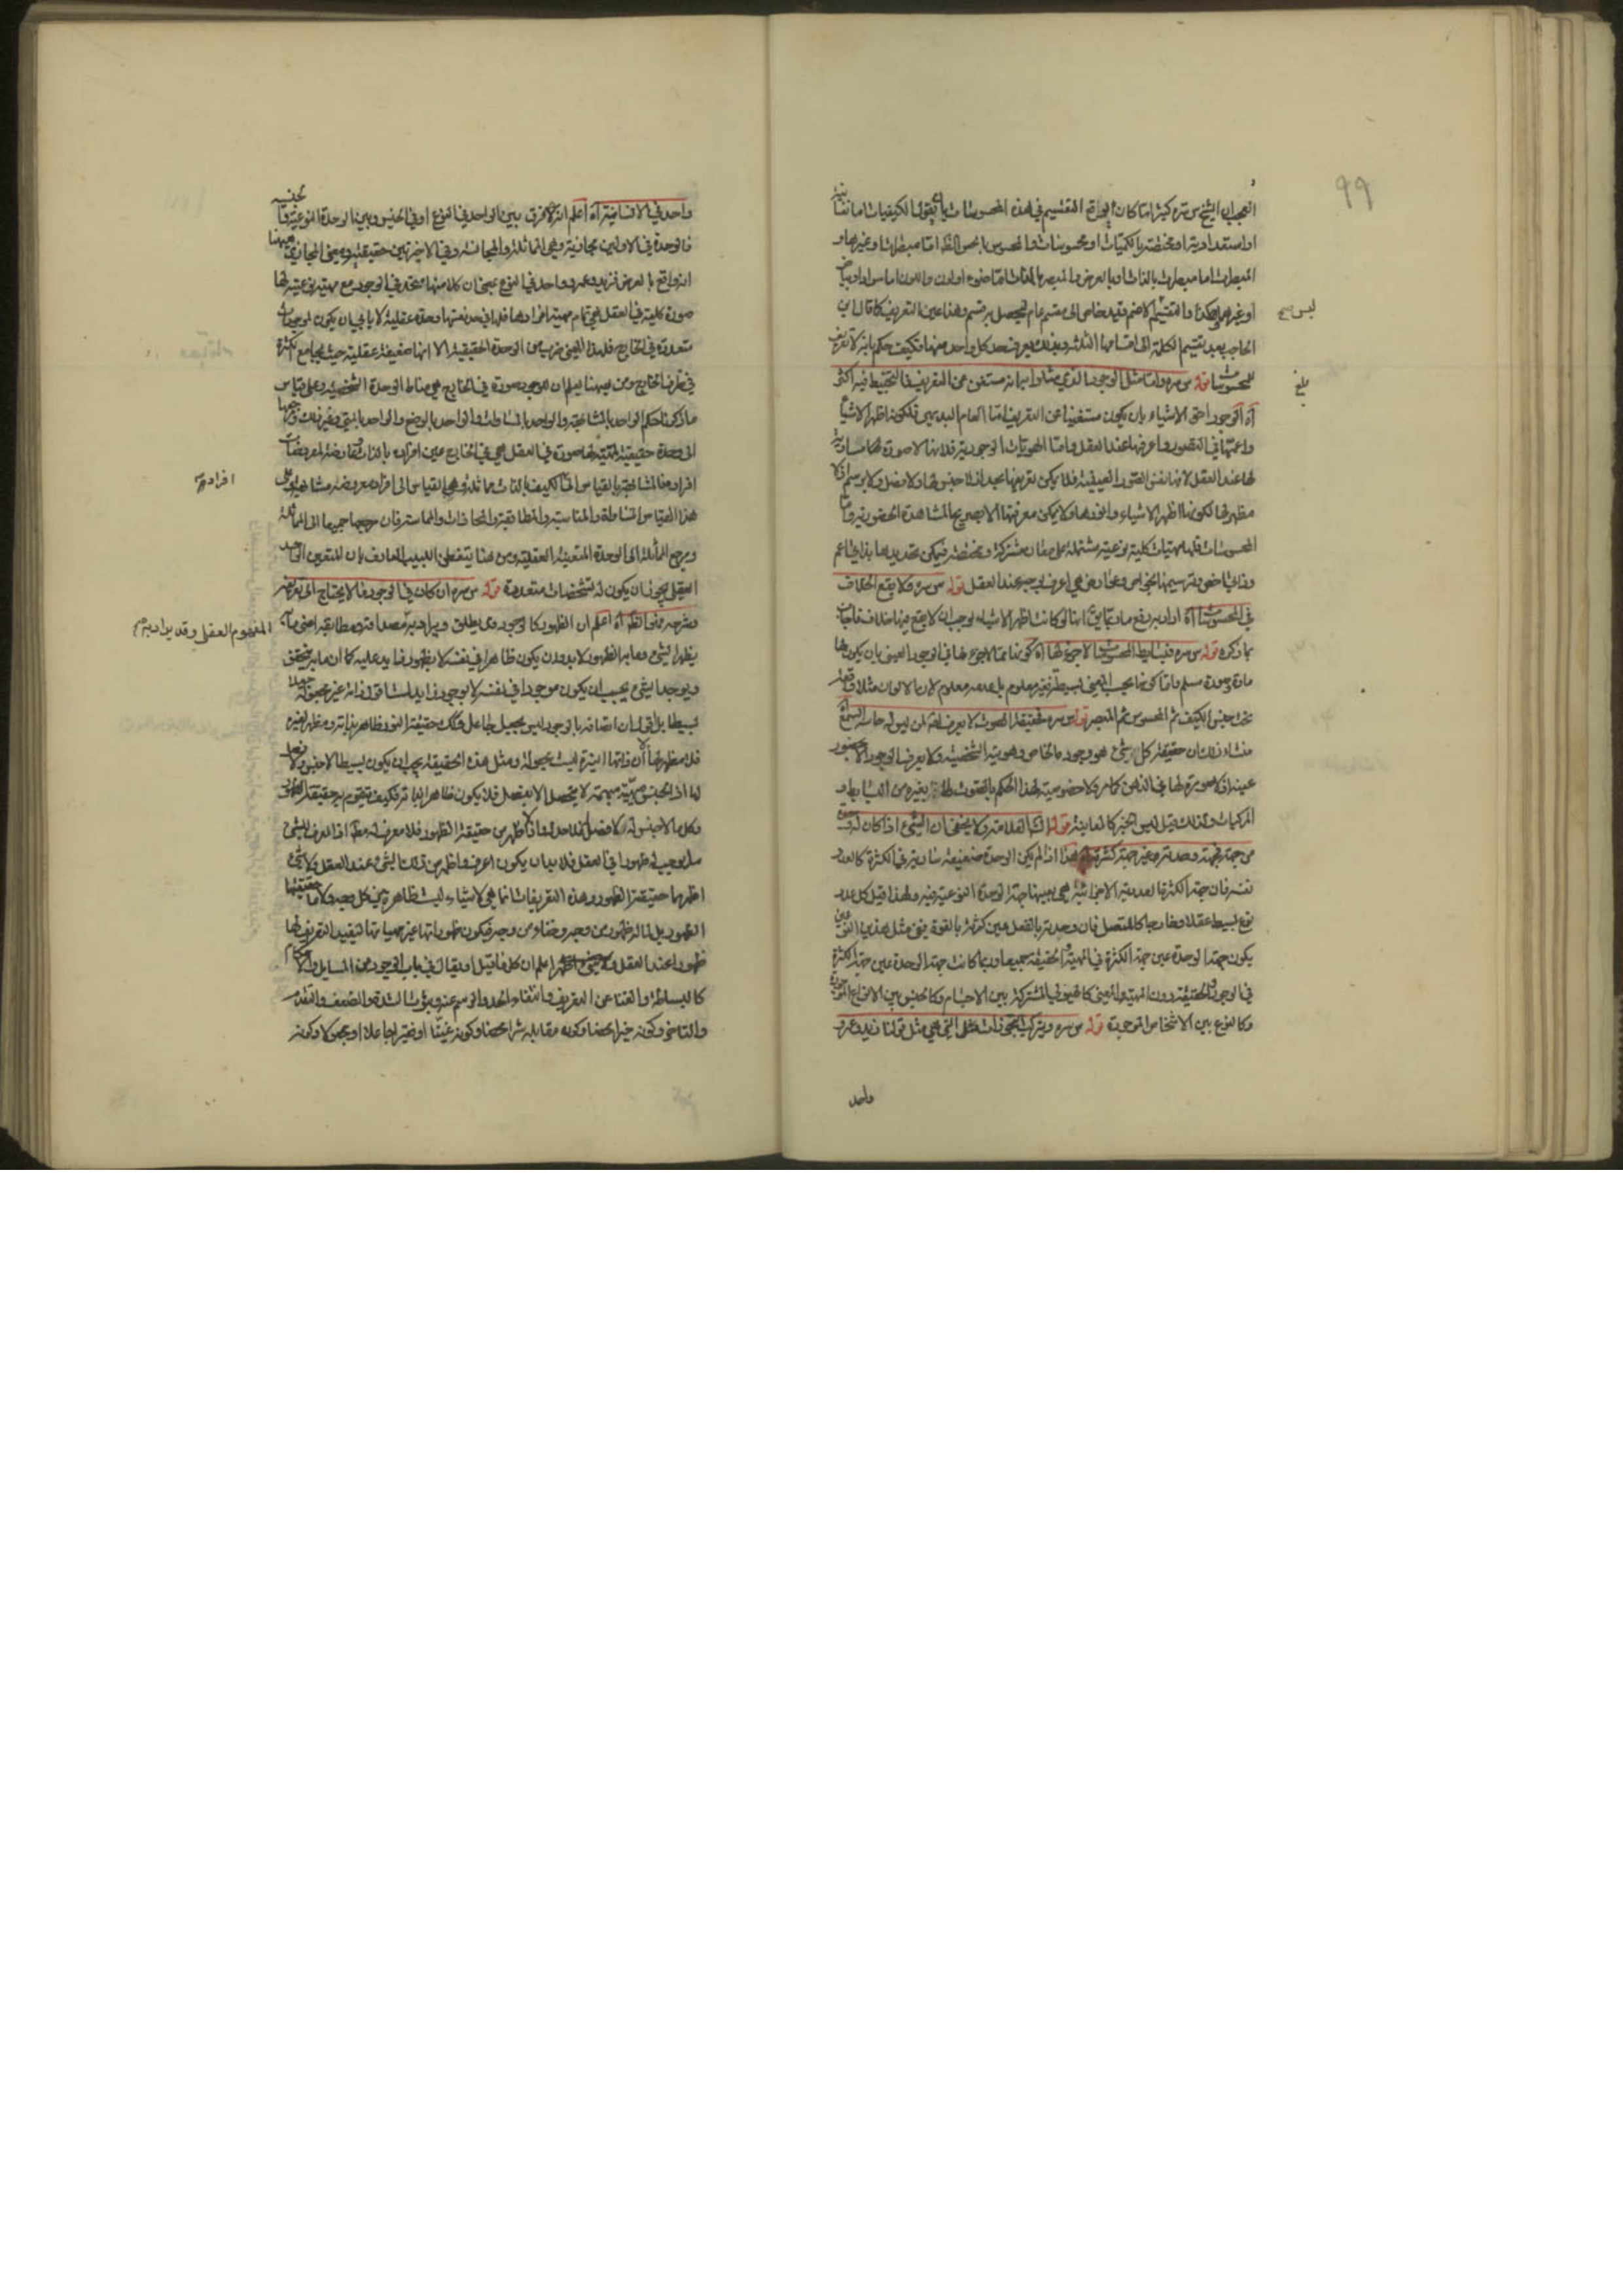 ٩٩
العجب ان الشيخ س سره كيف انتا كان التقسيم في هذه المحسوسات بان يقول الكيفيات اما نفسانية
او استعدادية او مختصة بالكميات او محسوسات والمحسوس بالحس الظ اما مبصرات او غيرها و
المبصرات اما مبصرات بالذات او بالعرض والمبصر بالذات اما ضوء او لون واللون اما سواد او بياض
او غيرهما وهكذا والتقسيم الا ضم قيد خاص الى مقسم عام ليحصل به قسم وهذا عين التعريف كما قال ابن
الحاجب بعد تقسيم الكلمة الى اقسامها الثلثة وبذلك يعرف حد كل واحد منها فكيف حكم بانه لا تعريف
للمحسوسات قوله س سره وامتا مثل الوجود الذي مثلوا به انه مستغن عن التعريف فالتخبيط فيه اكثر
آه الوجود احق الاشياء بان يكون مستغنيا عن التعريف اما العام البديهي فلكونه اظهر الاشياء
واعمها في التصور واعرفها عند العقل واما الهويات الوجودية فلانها لا صورة لها مساوية
لها عند العقل لانها نفس الصور العينية فلا يمكن تعريفها بحد اذ لا جنس لها ولا فصل ولا برسم اذ لا
مظهر لها لكونها اظهر الاشياء واخفها ولا يمكن معرفتها الا بصريح المشاهدة الحضورية واما
المحسوسات فلها مهيات كلية نوعية مشتملة على معان مشتركة ومختصة فيمكن تحديدها بذاتي اعم
وذاتي اخص وترسيمها بخواص وعوارض هي اعرف بوجه عند العقل قوله س سره ولا يقع الخلاف
في المحسوسات آه اراد به دفع ما ربما يق انها لو كانت اظهر الاشياء لوجب ان لا يقع فيها خلاف فاجاب
بما ذكره قوله س سره فبسايط المحسوسات لا جزء لها آه كونها مما لا جزء لها في الوجود العيني بان يكون لها
مادة وصورة مسلم واما كونها بحسب المعنى بسيطة فغير معلوم بل عدمه معلوم لان الالوان مثلا واقعة
تحت جنس الكيف ثم المحسوس ثم المبصر قوله س سره فحقيقة الصوت لا يعرف اصلا لمن ليس له حاسة السمع
منشاء ذلك ان حقيقة كل شيء هو وجوده الخاص وهويته الشخصية ولا يعرف الوجود الا بحضور
عينه اذ لا صورة لها في الذهن كما مر ولا خصوصية لهذا الحكم بالصوت بل بغيره من البسايط و
المركبات ولذلك قيل ليس الخبر كالمعاينة قوله الشيا العلامة ولا يخفى ان الشيء اذا كان له وحدة
من جهة فجهة وحدته غير جهة كثرته هذا اذا لم يكن الوحدة ضعيفة سارية في الكثرة كالعدد
نفسه فان جهة الكثرة العددية الاجزائية هي بعينها جهة الوحدة النوعية فيه ولهذا قيل كل عدد
نوع بسيط عقلا وخارجا كالمتصل فان وحدته بالفعل عين كثرته بالقوة ففي مثل هذين النوعين
يكون جهة الوحدة عين جهة الكثرة في المهية والحقيقة جميعا وربما كانت جهة الوحدة عين جهة الكثرة
في الوجود والحقيقة دون المهية والمعنى كالهيولى المشتركة بين الاجسام وكالجنس بين الانواع الموجودة
وكالنوع بين الاشخاص الموجودة قوله س سره ويتركب التجوزات مثل التي هي مثل قولنا زيد وعمرو
واحد
ليس صح
بلغ
واحد في الانسانية آه اعلم انه لا فرق بين الواحد في النوع او في الجنس وبين الوحدة النوعية والجنسية
فالوحدة في الاولين مجازية وهي المماثلة والمجانسة وفي الاخيرتين حقيقية ومعنى المجازي ههنا
انه واقع بالعرض فزيد وعمرو واحد في النوع بمعنى ان كلا منهما متحد في الوجود مع مهية نوعية لها
صورة كلية في العقل هي تمام مهية افرادها فلها في حد نفسها وحدة عقلية لا يابى ان يكون لموجودات
متعددة في الخارج فلهذا المعنى ضرب من الوحدة الحقيقية الا انها ضعيفة عقلية حيث يجامع الكثرة
في ظرف الخارج ومن ههنا يعلم ان الوجود صورة في الخارج هي مناط الوحدة الشخصية وعلى قياس
ما ذكرنا حكم الواحد بالمشابهة والواحد بالمساوات والواحد بالوضع والواحد بالمتى وغير ذلك ومرجعها
الى وحدة حقيقية لمهية لها صورة في العقل هي في الخارج عين افراده بالذات وعارضة لمعروضات
افراده فالمشابهة بالقياس الى الكيف بالذات مماثلة وهي بالقياس الى افراد معروضه مشابهة وعلى
هذا القياس المساواة والمناسبة والمطابقة والمحاذات والمماسة فان مرجعها جميعا الى المماثلة
ويرجع المماثلة الى الوحدة المتعينة العقلية ومن هنا يتفطن اللبيب العارف بان المتعين الواحد
العقلي يجوز ان يكون له تشخصات متعددة قوله س سره ان كان في الوجود ما لا يحتاج الى تعريفه
وشرحه فهو الظ آه اعلم ان الظهور كالوجود قد يطلق ويراد به مصداقه ومطابقه اعني ما به
يظهر الشيء وما به الظهور لا بد وان يكون ظاهرا في نفسه لا بظهور زايد عليه كما ان ما به يتحقق
ويوجد الشيء يجب ان يكون موجودا في نفسه لا بوجود زايد لست اقول ذاته غير مجعولة جعلا
بسيطا بل اقول ان اتصافه بالوجود ليس بجعل جاعل فكذلك حقيقة النور ظاهر بذاته ومظهر لغيره
فلا مظهر لها لا ان ذاتها النيرة ليست مجعولة ومثل هذه الحقيقة يجب ان يكون بسيطا لا جنس ولا فصل
لها اذ الجنس مهية مبهمة لا يتحصل الا بالفصل فلا يكون ظاهرا بذاته فكيف يتقوم به حقيقة الظهور
وكل ما لا جنس له ولا فصل له فلا حد له واذ لا اظهر من حقيقة الظهور فلا معرف له مطلقا اذ المعرف للشيء
ما يوجب له ظهورا في العقل فلا بد ان يكون اعرف واظهر من ذلك الشيء عند العقل ولا شيء
اظهرها حقيقة الظهور وهذه التعريفات انما هي لاشياء ليست ظاهرة من كل وجه ولا حقيقتها
الظهور بل لما له ظهور من وجه وخفاء من وجه فيكون ظهوراتها غير مهياتها لتفيد التعريف لها
ظهورا عند العقل اعلم ان كل ما قيل او يقال في باب الوجود من المسايل والاحكام
كالبساطة والغنا عن التعريف وانتفاء الحد والرسم عنه وثبوت الشدة والضعف والتقدم
والتاخر وكونه خيرا محضا وكونه مقابله شرا محضا وكونه غنيا او فقيرا جاعلا او مجعولا وكونه
افراده
المفهوم العقلي وقد يراد به